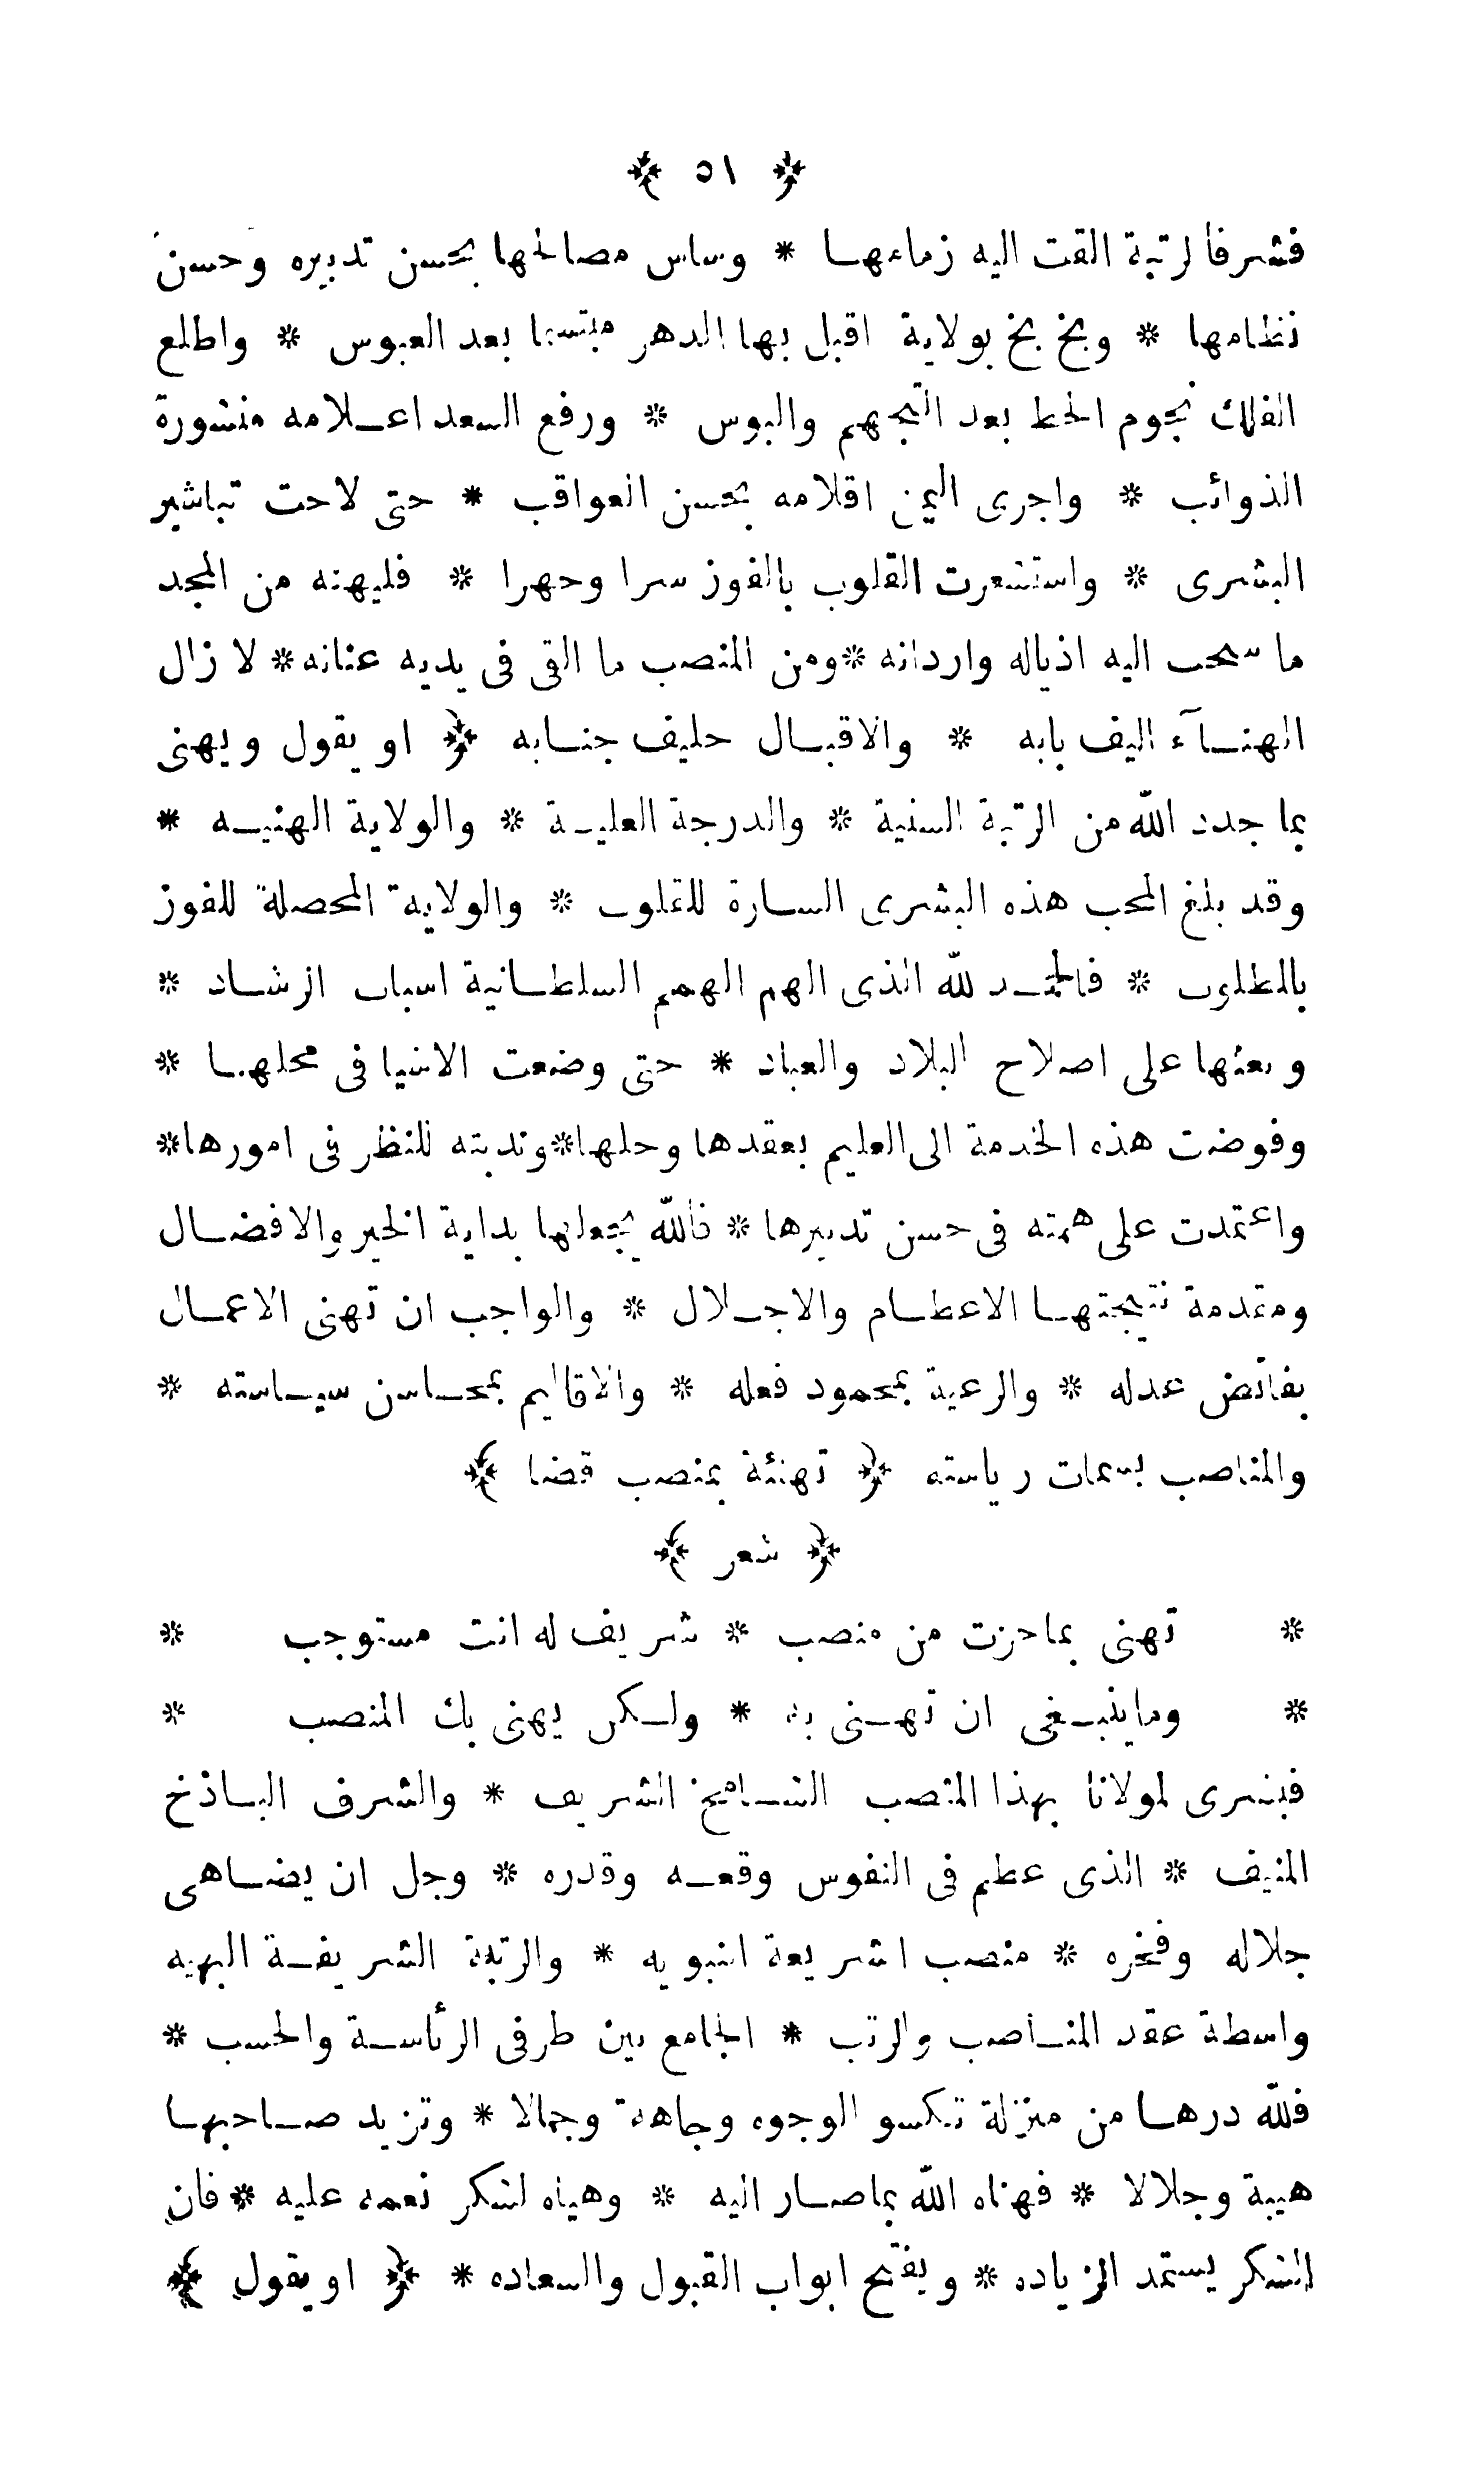 ﴿ ٥١ ﴾
فشرفا لرتبة القت اليه زمامها * وساس مصالحها بحسن تدبيره وحسن
نظامها * وبخ بخ بولاية اقبل بها الدهر مبتسما بعد العبوس * واطلع
الفلك نجوم الحظ بعد التجهم والبوس * ورفع السعد اعلامه منشورة
الذوائب * واجرى اليمن اقلامه بحسن العواقب * حتى لاحت تباشير
البشرى * واستشعرت القلوب بالفوز سرا وجهرا * فليهنه من المجد
ما سحب اليه اذياله واردانه * ومن المنصب ما القى فى يديه عنانه * لا زال
الهنآء اليف بابه * والاقبال حليف جنابه ﴿ او يقول ويهنى
بما جدد الله من الرتبة السنية * والدرجة العلية * والولاية الهنيه *
وقد بلغ المحب هذه البشرى السارة للقلوب * والولاية المحصلة للفوز
بالمطلوب * فالحمد لله الذى الهم الهمم السلطانية اسباب الرشاد *
وبعثها على اصلاح البلاد والعباد * حتى وضعت الاشيا فى محلها *
وفوضت هذه الخدمة الى العليم بعقدها وحلها * وندبته للنظر فى امورها *
واعتمدت على همته فى حسن تدبيرها * فالله يجعلها بداية الخير والافضال
ومقدمة نتيجتها الاعظام والاجلال * والواجب ان تهنى الاعمال
بفائض عدله * والرعية بمحمود فعله * والاقاليم بمحاسن سياسته *
والمناصب بسمات رياسته ﴿ تهنئة بمنصب قضا ﴾
﴿ شعر ﴾
* تهنى بماحزت من منصب * شريف له انت مستوجب *
* وماينبغى ان تهنى به * ولكن يهنى بك المنصب *
فبشرى لمولانا بهذا المنصب الشامخ الشريف * والشرف الباذخ
المنيف * الذى عظم فى النفوس وقعه وقدره * وجل ان يضاهى
جلاله وفخره * منصب الشريعة النبويه * والرتبة الشريفة البهيه
واسطة عقد المناصب والرتب * الجامع بين طرفى الرئاسة والحسب *
فلله درها من منزلة تكسو الوجوه وجاهة وجمالا * وتزيد صاحبها
هيبة وجلالا * فهناه الله بماصار اليه * وهياه لشكر نعمه عليه * فان
الشكر يستمد الزياده * ويفتح ابواب القبول والسعاده * ﴿ او يقول ﴾